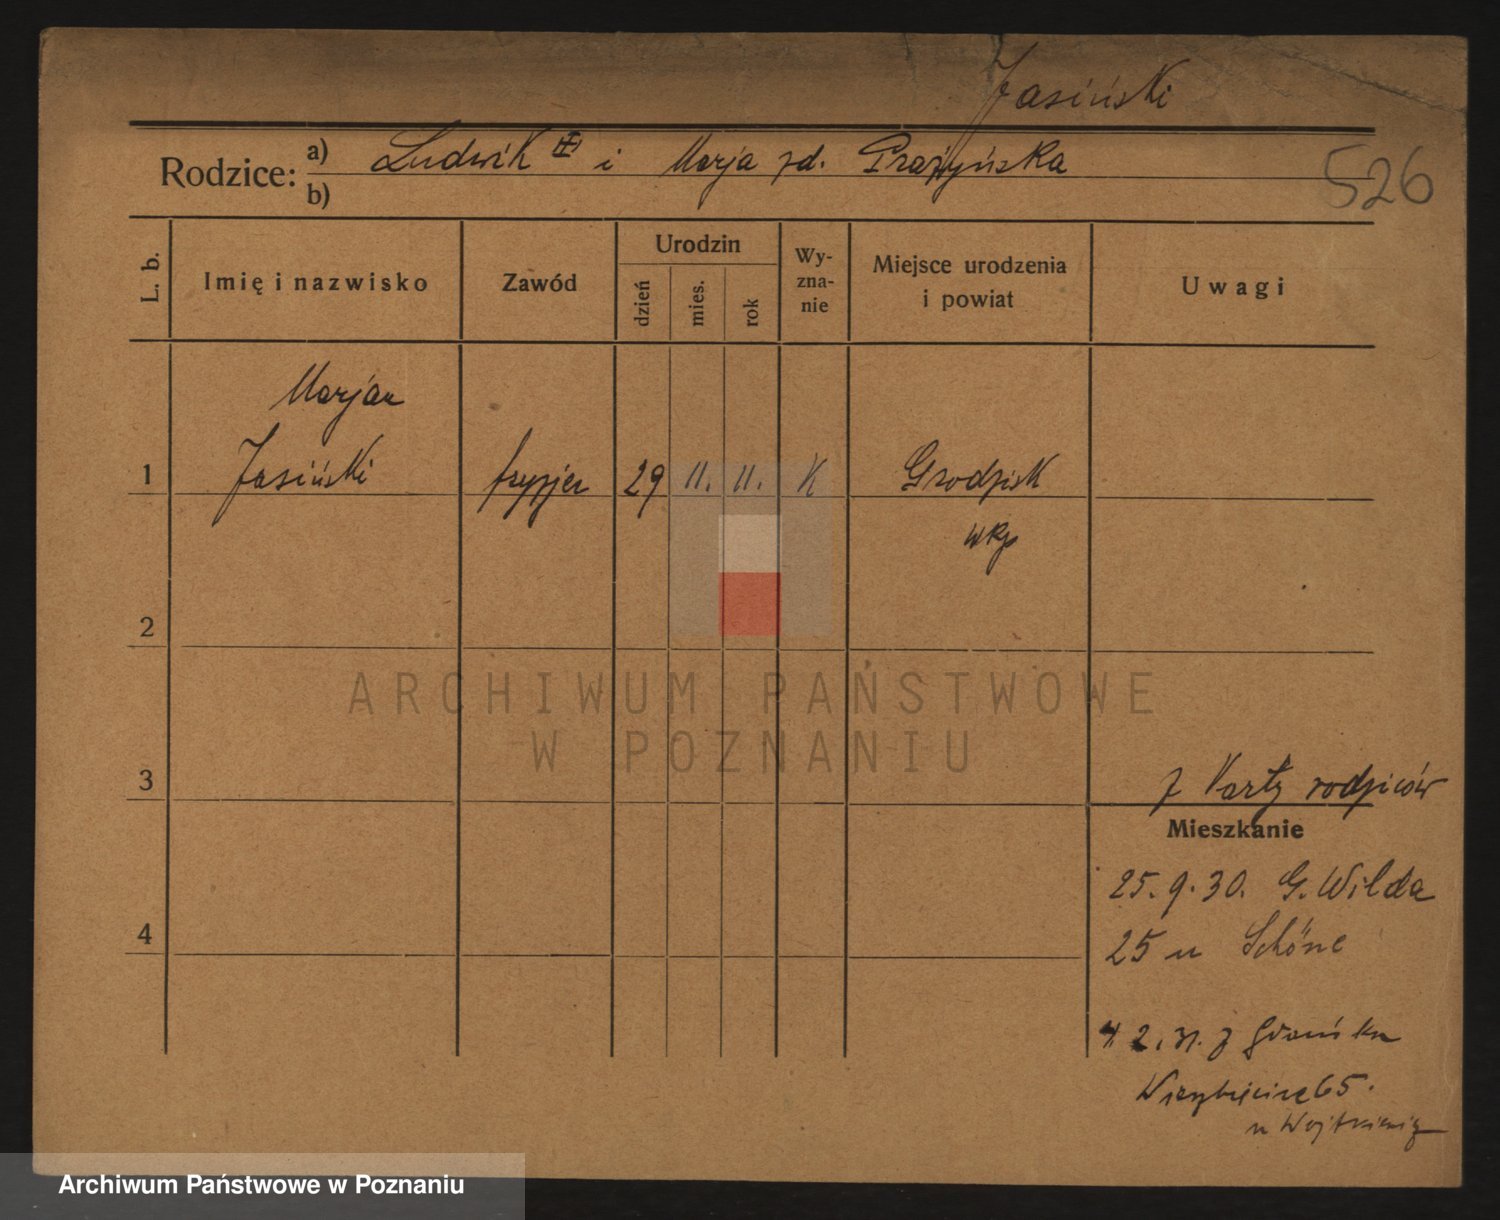 Jasiński
Rodzice:
a) Ludwik i Marja zd. Prażyńska
b)
526
L. b.
Imię i nazwisko
Zawód
Urodzin
dzień
mies.
rok
Wy-
zna-
nie
Miejsce urodzenia
i powiat
Uwagi
Marjan
1 Jasiński fryzjer 29 11. 11. K Grodzisk
wkp
2
ARCHIWUM PAŃSTWOWE
W POZNANIU
3
z Karty rodziców
Mieszkanie
25.9.30. G. Wilda
25 u Schöne
4
4.2.31. z Gdańska
Wierzbięcice 65.
u
Archiwum Państwowe w Poznaniu